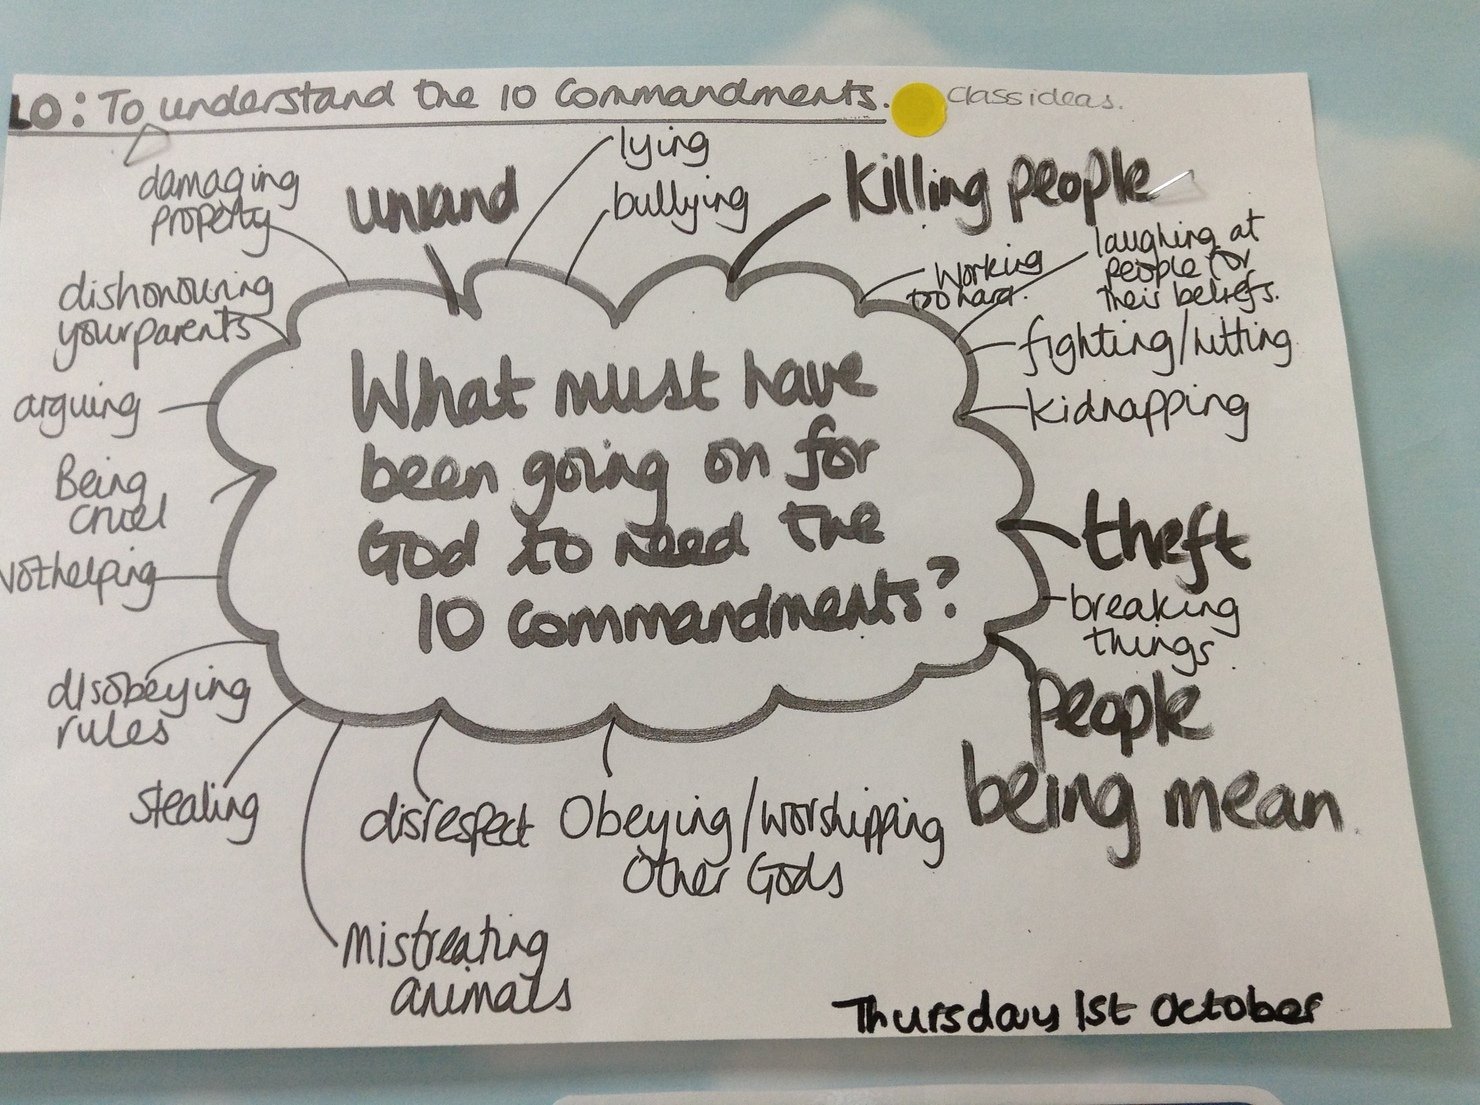 LO: To understand the 10 Commandments.
Class ideas.
lying
bullying
unkind
killing people
damaging
property
working
too hard.
laughing at
people for
their beliefs.
dishonouring
your parents
fighting/hitting
arguing
kidnapping
What must have
been going on for
God to need the
10 commandments?
Being
cruel
theft
Nothelping
breaking
things.
disobeying
rules
People
being mean
stealing
disrespect
Obeying/worshipping
Other Gods
Mistreating
animals
Thursday 1st October